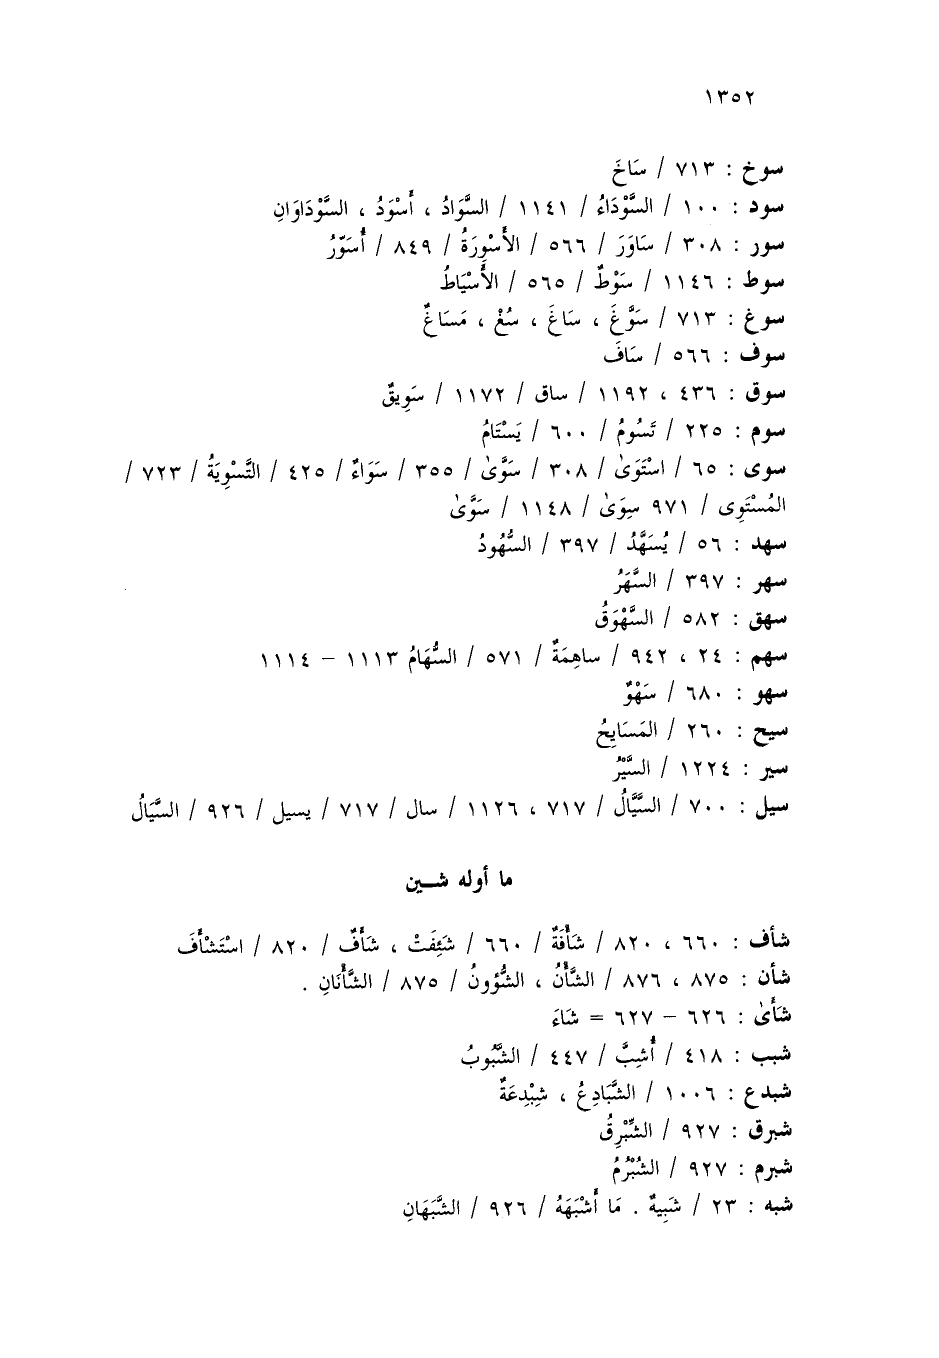 ١٣٥٢
سوخ : ٧١٣ / سَاخَ
سود : ١٠٠ / السَّوْدَاءُ / ١١٤١ / السَّوَادُ ، أَسْوَدُ ، السَّوْدَاوَانِ
سور : ٣٠٨ / سَاوَرَ / ٥٦٦ / الأَسْوِرَةُ / ٨٤٩ / أُسَوّرُ
سوط : ١١٤٦ / سَوْطٌ / ٥٦٥ / الأَسْيَاطُ
سوغ : ٧١٣ / سَوَّغَ ، سَاغَ ، سُغْ ، مَسَاغٌ
سوف : ٥٦٦ / سَافَ
سوق : ٤٣٦ ، ١١٩٢ / ساق / ١١٧٢ / سَوِيقٌ
سوم : ٢٢٥ / تَسُومُ / ٦٠٠ / يَسْتَامُ
سوى : ٦٥ / اسْتَوَىٰ / ٣٠٨ / سَوَّىٰ / ٣٥٥ / سَوَاءٌ / ٤٢٥ / التَّسْوِيَةُ / ٧٢٣ /
المُسْتَوِى / ٩٧١ سِوَىٰ / ١١٤٨ / سَوَّىٰ
سهد : ٥٦ / يُسَهَّدُ / ٣٩٧ / السُّهُودُ
سهر : ٣٩٧ / السَّهَرُ
سهق : ٥٨٢ / السَّهْوَقُ
سهم : ٢٤ ، ٩٤٢ / ساهِمَةٌ / ٥٧١ / السُّهَامُ ١١١٣ – ١١١٤
سهو : ٦٨٠ / سَهْوٌ
سيح : ٢٦٠ / المَسَايِحُ
سير : ١٢٢٤ / السَّيْرُ
سيل : ٧٠٠ / السَّيَّالُ / ٧١٧ ، ١١٢٦ / سال / ٧١٧ / يسيل / ٩٢٦ / السَّيَالُ
ما أوله شــين
شأف : ٦٦٠ ، ٨٢٠ / شَأْفَةٌ / ٦٦٠ / شَئِفَتْ ، شَأَفٌ / ٨٢٠ / اسْتَشْأَفَ
شأن : ٨٧٥ ، ٨٧٦ / الشَّأْنُ ، الشُّؤونُ / ٨٧٥ / الشَّأْنَانِ .
شَأَىٰ : ٦٢٦ – ٦٢٧ = شَاءَ
شبب : ٤١٨ / أُشِبَّ / ٤٤٧ / الشَّبُوبُ
شبدع : ١٠٠٦ / الشَّبَادِعُ ، شِبْدِعَةٌ
شبرق : ٩٢٧ / الشِّبْرِقُ
شبرم : ٩٢٧ / الشُبْرُمُ
شبه : ٢٣ / شَبِيهٌ . مَا أَشْبَهَهُ / ٩٢٦ / الشَّبَهَانِ